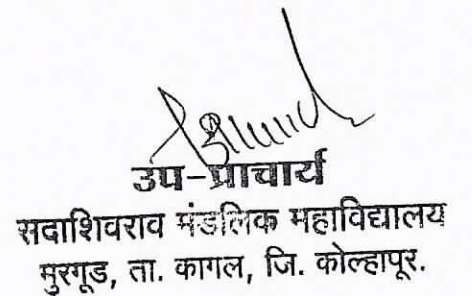 उप-प्राचार्य
सदाशिवराव मंडलिक महाविद्यालय
मुरगूड, ता. कागल, जि. कोल्हापूर.